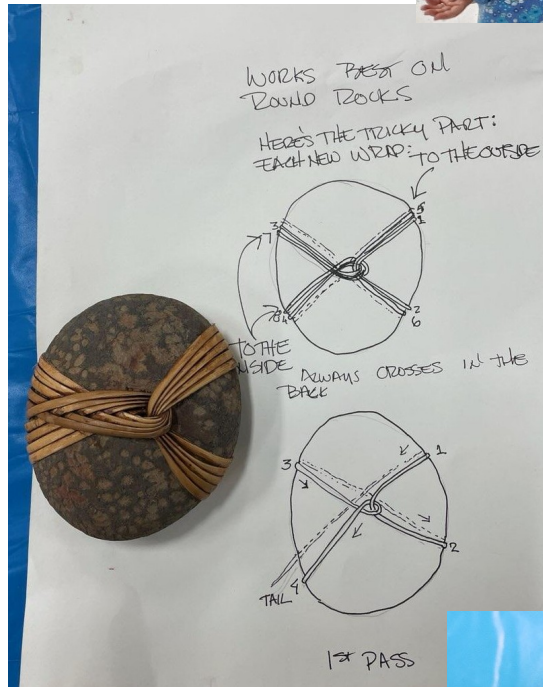 WORKS BEST ON
ROUND ROCKS
HERE'S THE TRICKY PART:
EACH NEW WRAP: TO THE OUTSIDE
5
1
3
7
2
6
8
4
TO THE
INSIDE
ALWAYS CROSSES IN THE
BACK
1
3
2
4
TAIL
1ST PASS